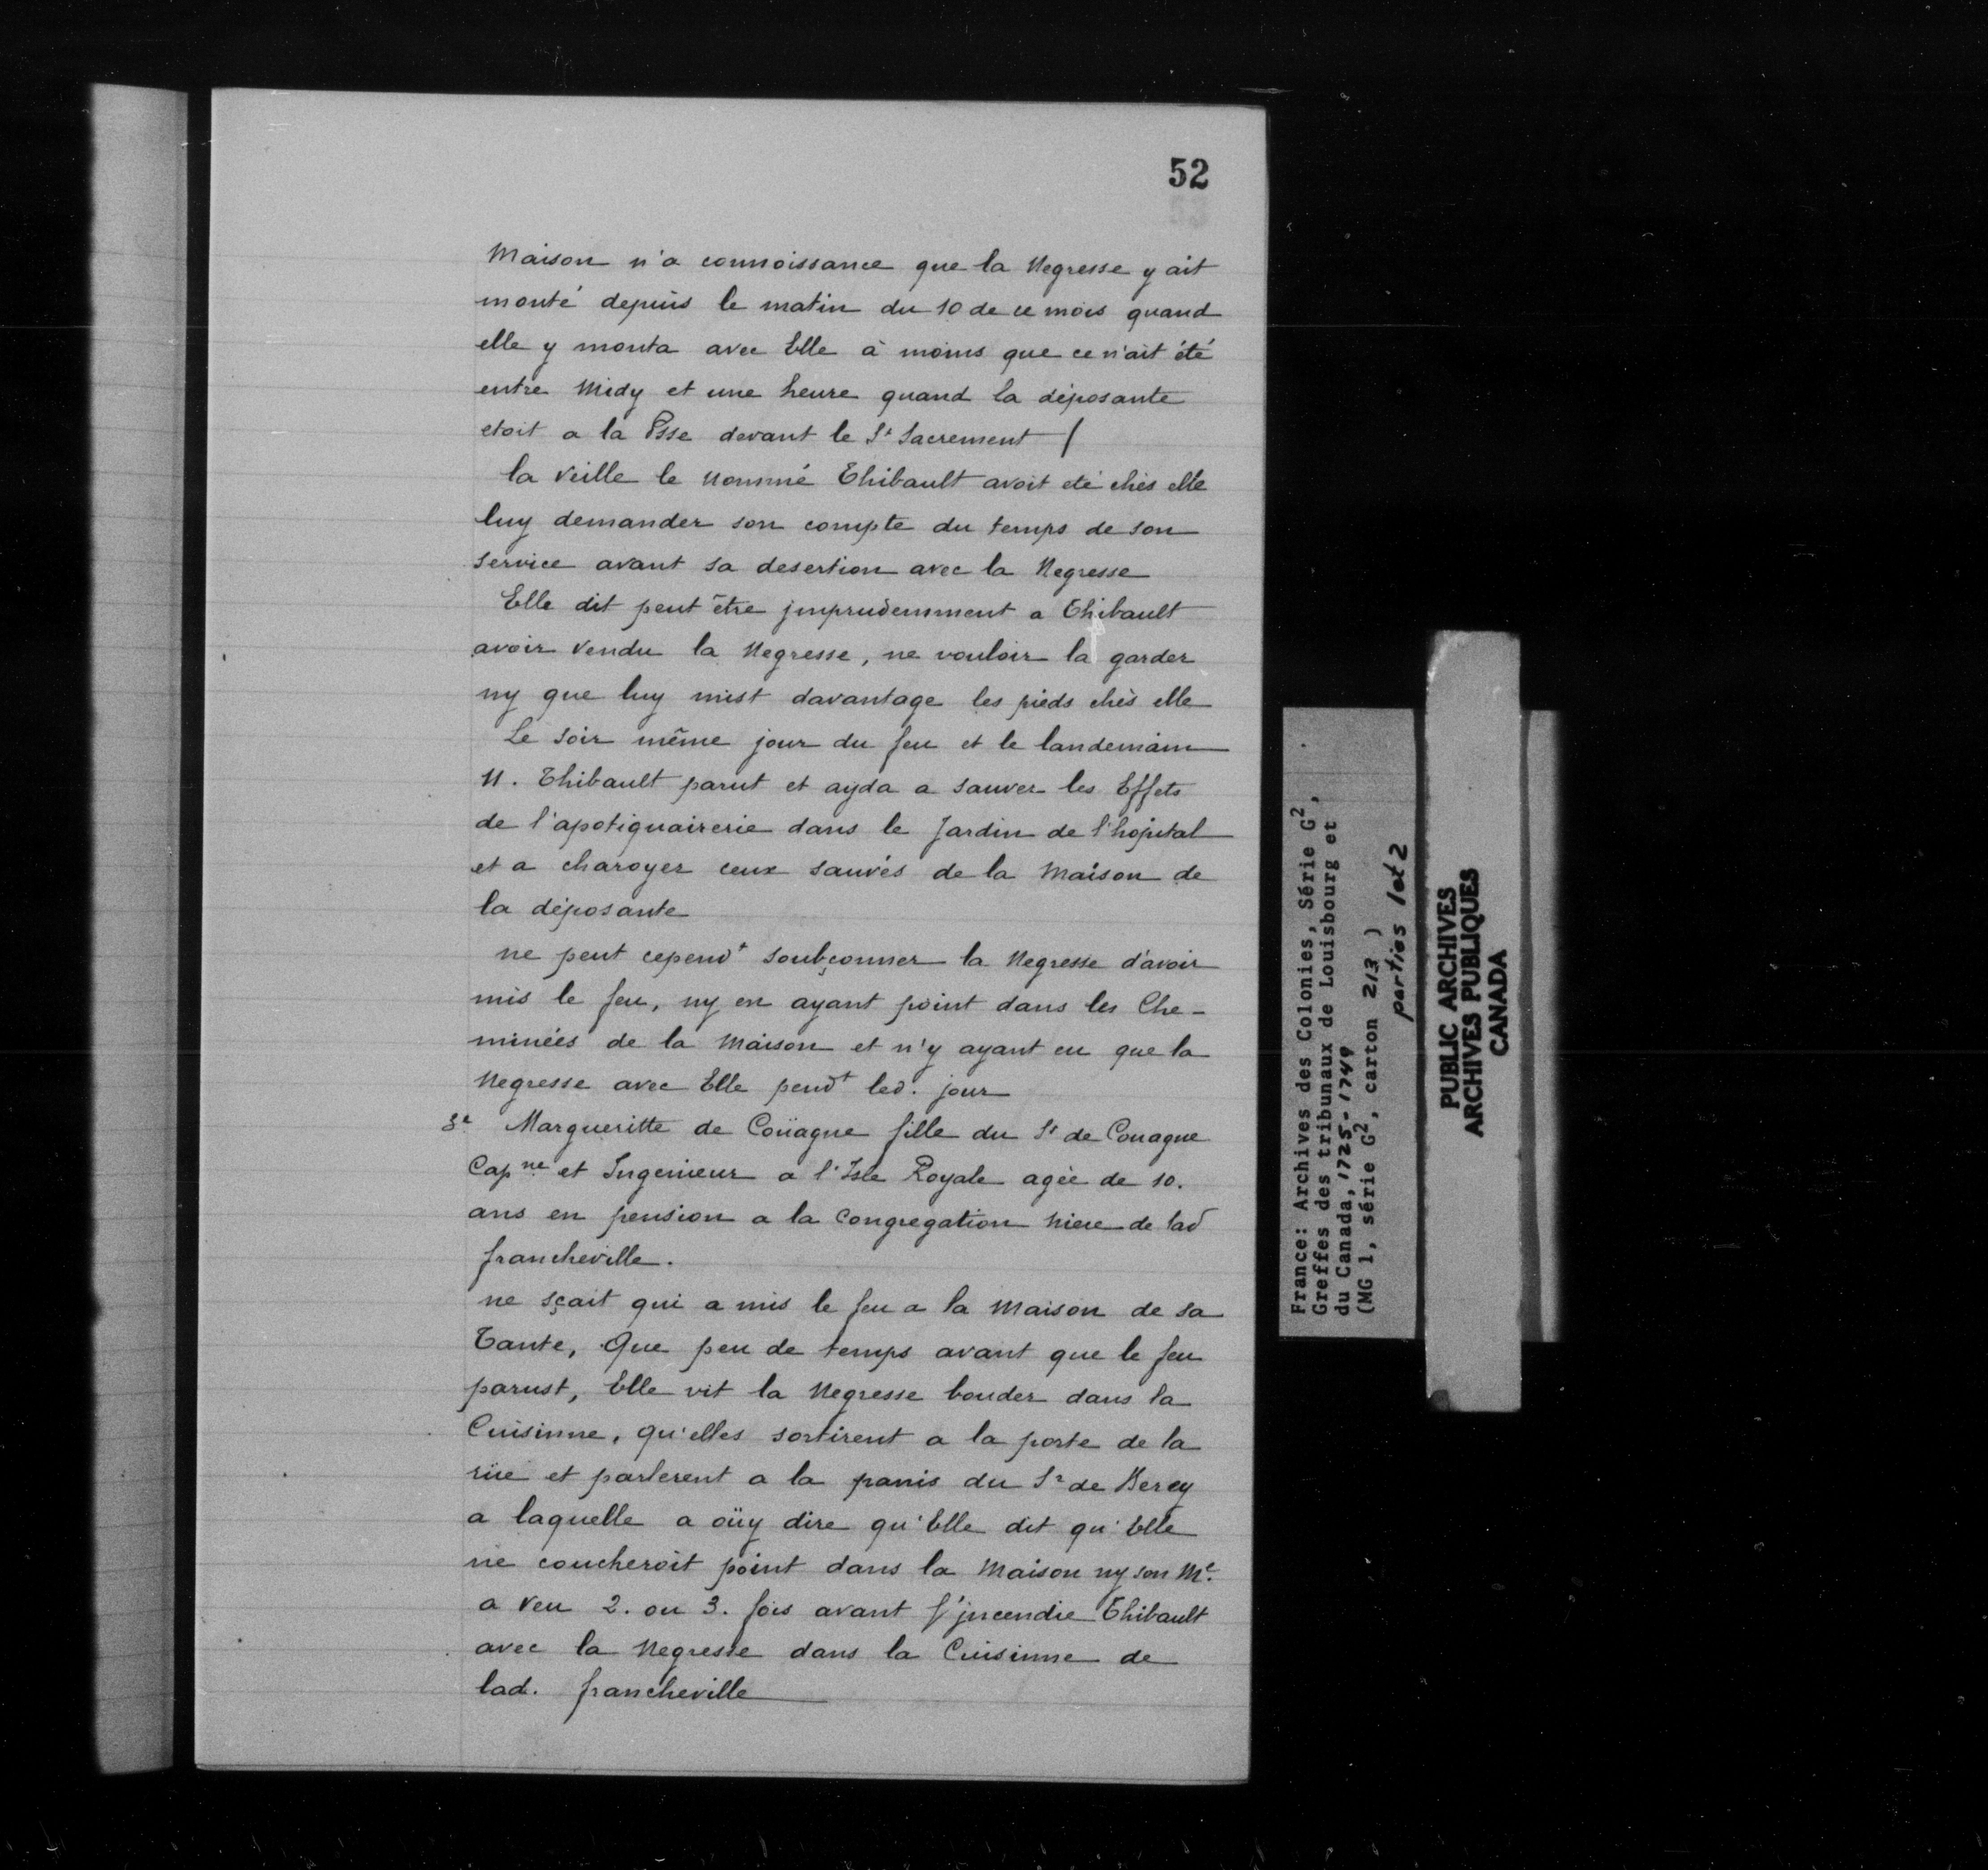 52
Maison n'a connoissance que la Negresse y ait
monté depuis le matin du 10 de ce mois quand
elle y monta avec Elle à moins que ce n'ait été
entre Midy et une heure quand la déposante
etoit a la Psse devant le St Sacrement /
la veille le nommé Thibault avoit eté chés elle
luy demander son compte du temps de son
service avant sa desertion avec la Negresse
Elle dit peut être jmprudemment a Thibault
avoir vendu la Negresse, ne vouloir la garder
ny que luy mist davantage les pieds chés elle
Le soir même jour du feu et le landemain
N. Thibault parut et ayda a sauver les Effets
de l'apotiquairerie dans le Jardin de l'hopital
et a charoyer ceux sauvés de la Maison de
la déposante
ne peut cependt soubçonner la Negresse d'avoir
mis le feu, ny en ayant point dans les Che-
minées de la Maison et n'y ayant eu que la
Negresse avec Elle pendt led. jour
3e Margueritte de Coüagne fille du Sr de Couagne
Capne et Ingenieur a l'Isle Royale agée de 10.
ans en pension a la Congregation niece de lad
francheville.
ne sçait qui a mis le feu a la Maison de sa
Tante, Que peu de temps avant que le feu
parust, Elle vit la Negresse bouder dans la
Cuisinne, qu'elles sortirent a la porte de la
rüe et parlerent a la panis du Sr de Berey
a laquelle a oüy dire qu'Elle dit qu'Elle
ne coucheroit point dans la Maison ny son Me.
a veu 2. ou 3. fois avant l'jncendie Thibault
avec la Negresse dans la Cuisinne de
lad. francheville
France: Archives des Colonies, Série G2,
Greffes des tribunaux de Louisbourg et
du Canada, 1725-1749
(MG 1, série G2, carton 213 )
parties 1et 2
PUBLIC ARCHIVES
ARCHIVES PUBLIQUES
CANADA